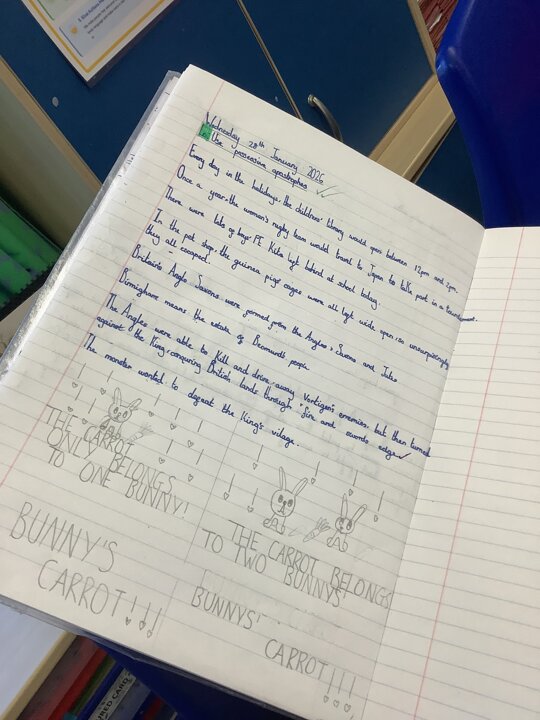 Wednesday 28th January 2026
Use possessive apostrophes
Every day in the holidays, the childrens' library would open between 12pm and 5pm.
Once a year, the women's rugby team would travel to Japan to take part in a tournament.
There were lots of boys' PE Kits left behind at school today.
In the pet shop, the guinea pigs' cages were all left wide open, so unsurprisingly
they all escaped.
Britain's Anglo Saxons were formed from the Angles, Saxons and Jutes
Birmingham means the estate of people.
The Angles were able to Kill and drive away Vortigern's enemies, but then turned
against the King, conquring British lands through fire and swords edge
The monster wanted to defeat the King's village.
THE CARROT
ONLY BELONGS
TO ONE BUNNY!
BUNNY'S
CARROT!!!
THE CARROT BELONGS
TO TWO BUNNYS'
BUNNYS'
CARROT!!!